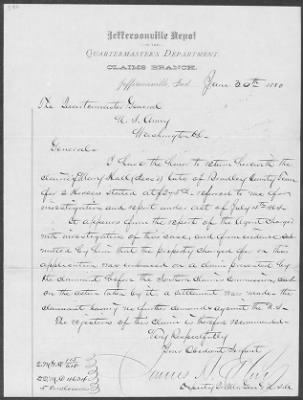 Jeffersonville Depot
OF THE
QUARTERMASTER'S DEPARTMENT.
CLAIMS BRANCH.
Jeffersonville, Ind. June 30th 1880
The Quartermaster General
U. S. Army
Washington
General:
I have the honor to return herewith the
claim of Hall late of Bradley County Tenn
for 2 Horses stated at referred to me for
investigation and report under act of July 4th 1864.
It appears from the report of the Agent charged
with investigation of this case, and from evidence sub-
mitted by him that the property charged for in this
application was embraced in a claim presented by
the claimant before the Southern Claims Commission, and
on the action taken by it, a settlement was made the
claimant having no further demands against the U.S.
The rejection of this claim is therefore recommended.
Very Respectfully
Your Obedient Servant
James
Deputy Q. M. Gen'l U.S.A.